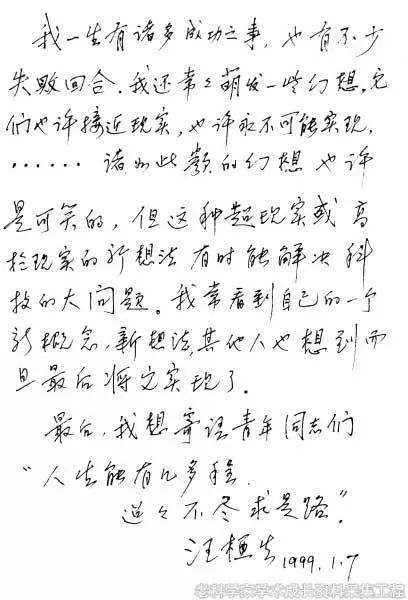 我一生有诸多成功之事，也有不少
失败回合．我还常々萌发一些幻想，它
们也许接近现实，也许永不可能实现，
……诸如此类的幻想也许
是可笑的，但这种超现实或高
于现实的新想法有时能解决科
技的大问题。我常看到自己的一个
新概念，新想法，其他人也想到而
且最后将之实现了．
最后，我想寄语青年同志们
“人生能有几多程，
迢々不尽求是路”．
汪槱生 1999.1.7
老科学家学术成长资料采集工程